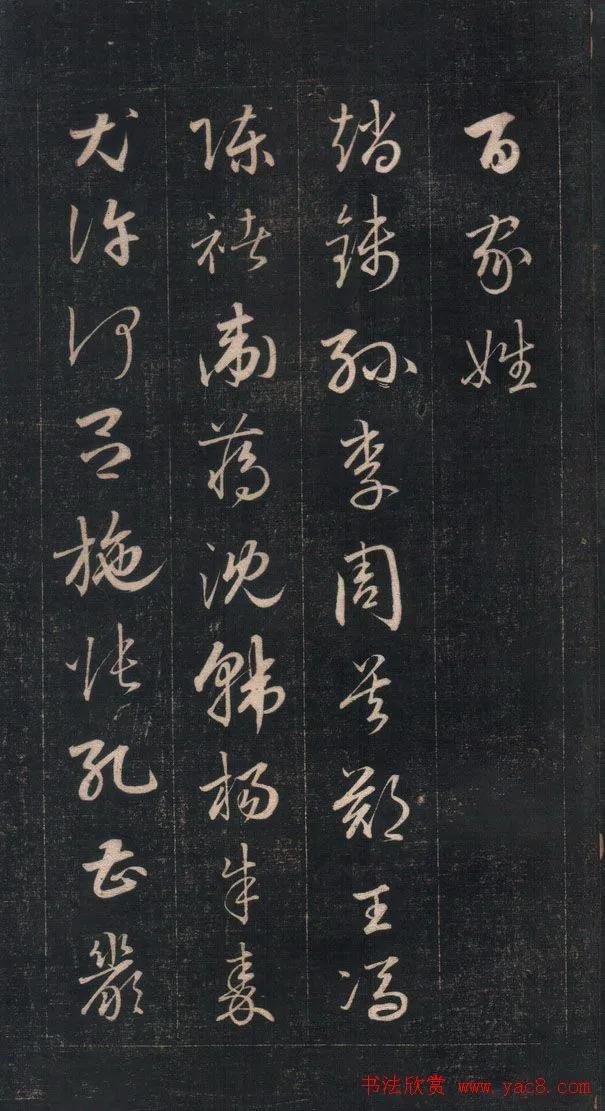 百家姓
趙錢孫李周吳鄭王馮
陳褚衛蔣沈韓楊朱秦
尤許何呂施張孔曹嚴
书法欣赏 www.yac8.com